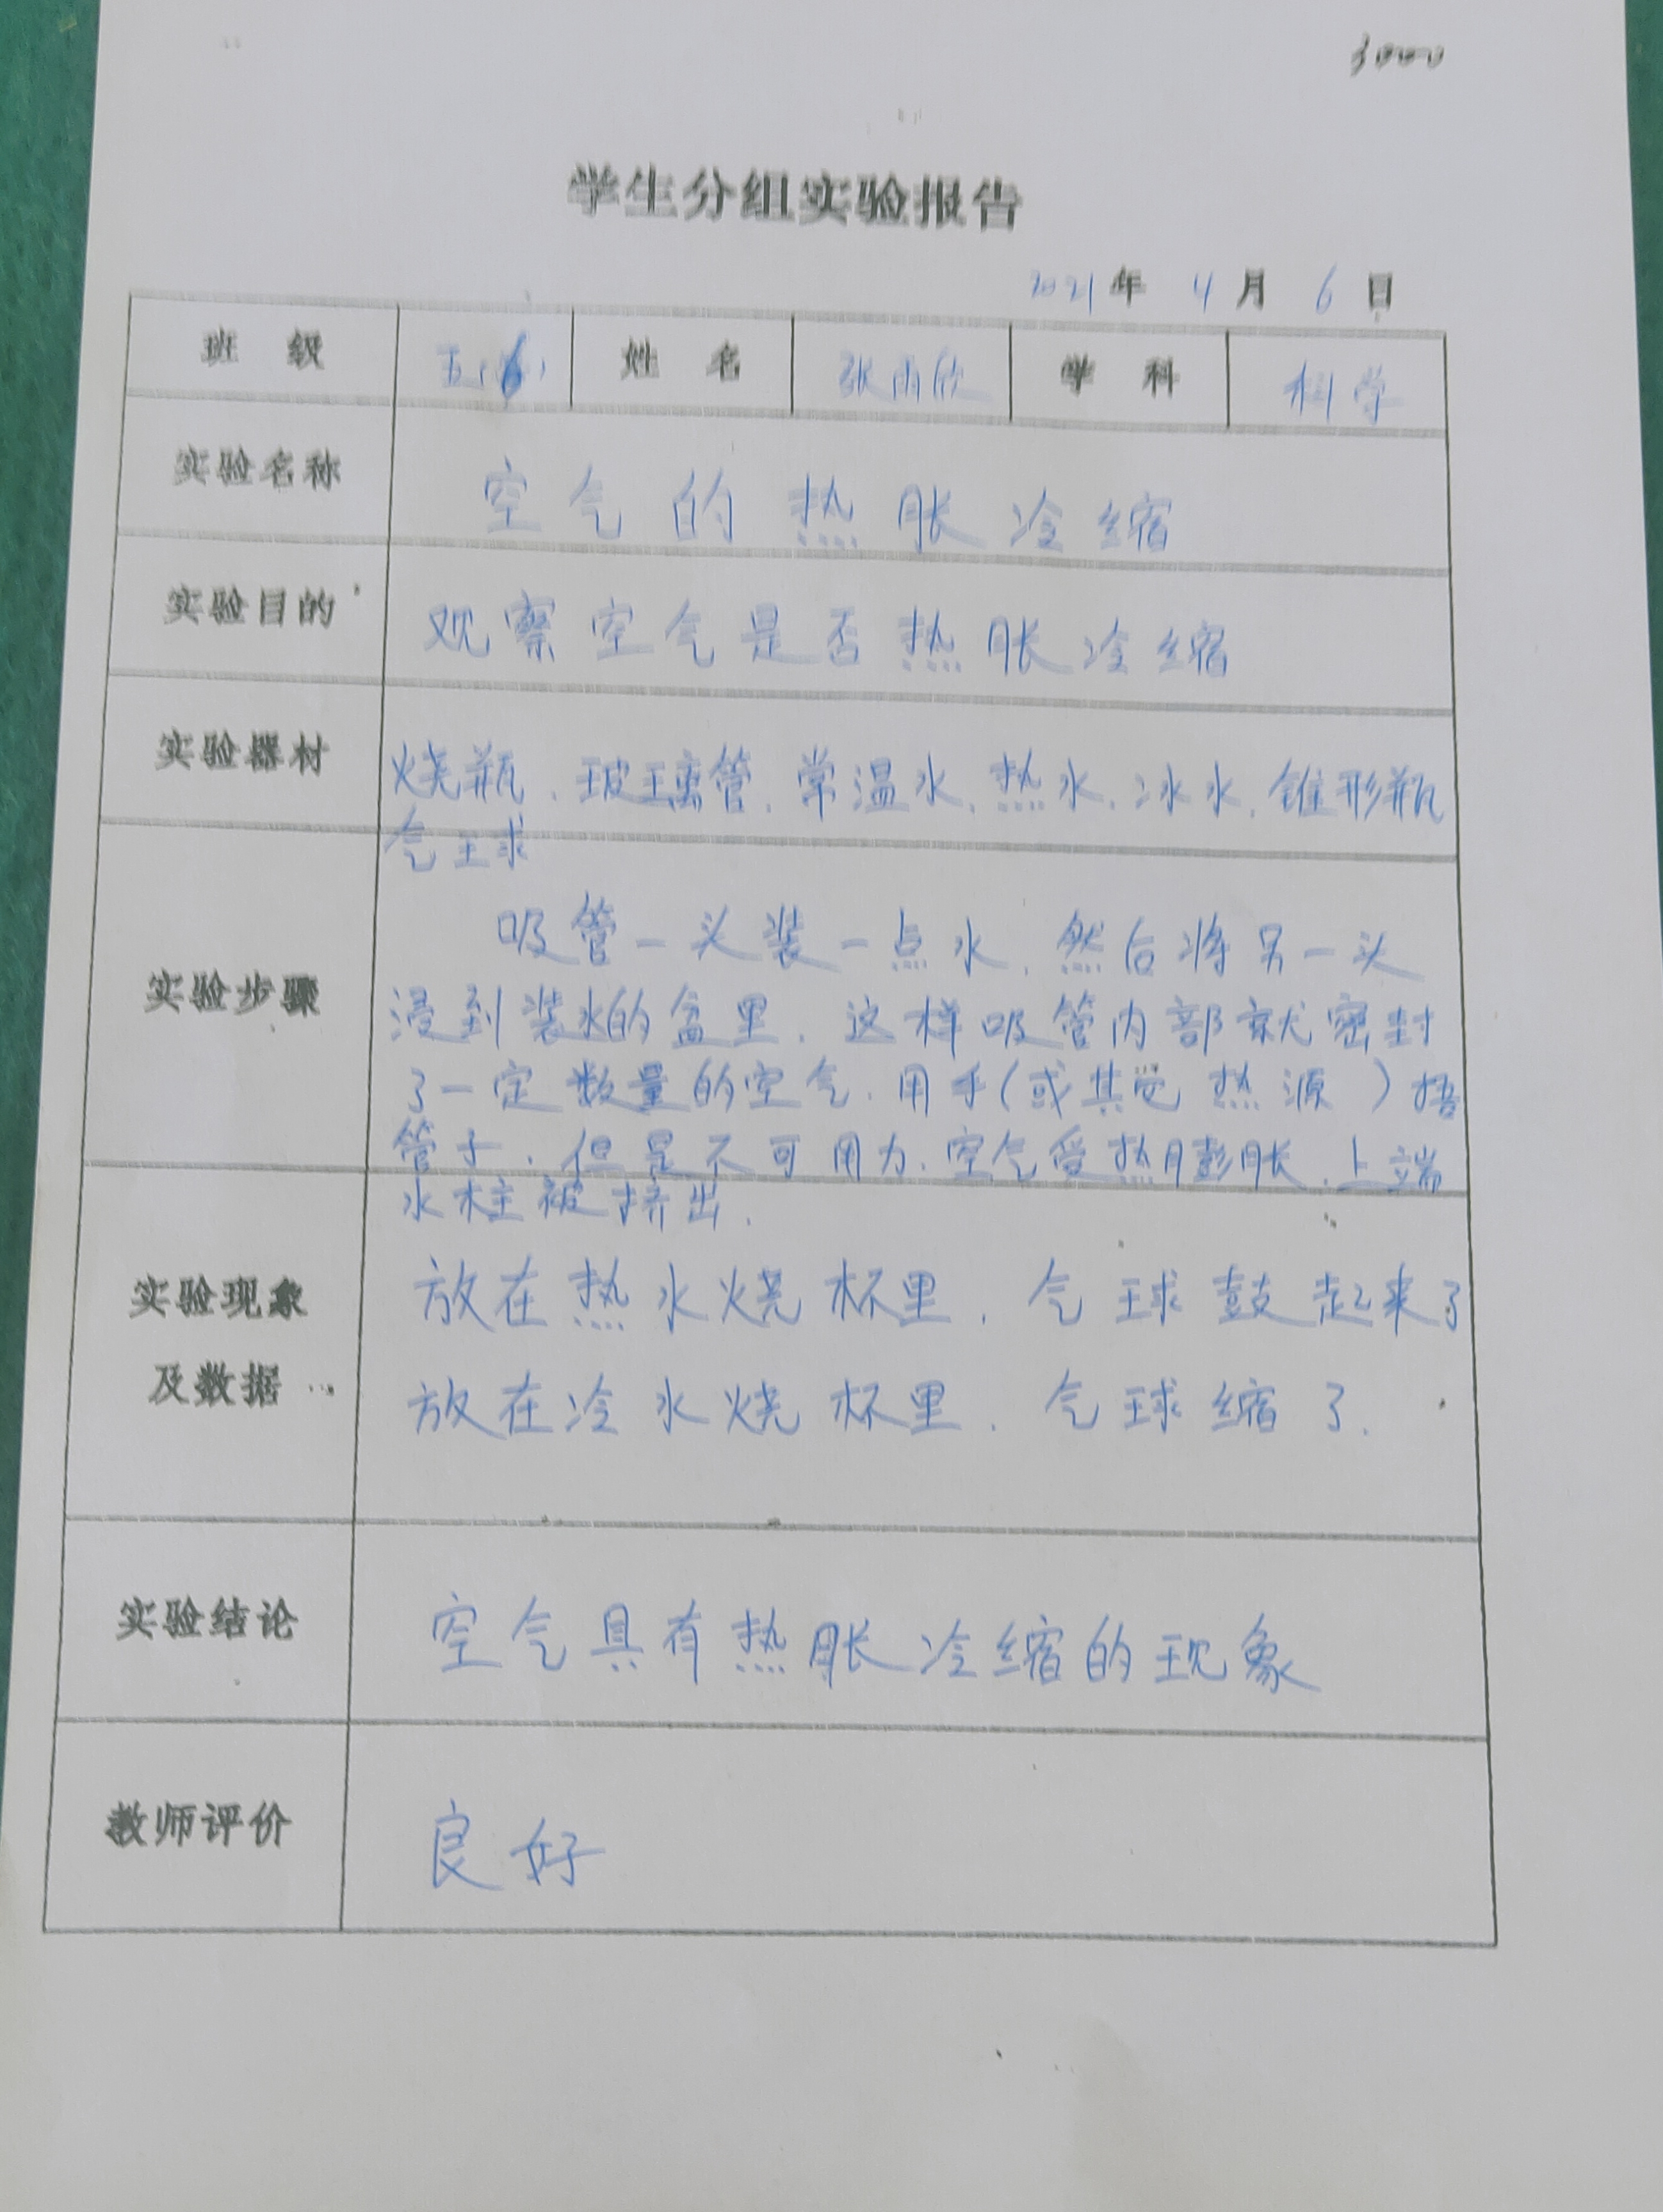 3000
学生分组实验报告
2021年 4月 6日
班 级 五(6) 姓 名 张雨欣 学 科 科学
实验名称 空气的热胀冷缩
实验目的 观察空气是否热胀冷缩
实验器材 烧瓶、玻璃管、常温水、热水、冰水、锥形瓶
气球
吸管一头装一点水,然后将另一头
实验步骤 浸到装水的盆里,这样吸管内部就密封
了一定数量的空气,用手(或其它热源)捂
管子,但是不可用力,空气受热膨胀,上端
水柱被挤出.
实验现象 放在热水烧杯里,气球鼓起来了
及数据 放在冷水烧杯里,气球缩了.
实验结论 空气具有热胀冷缩的现象
教师评价 良好